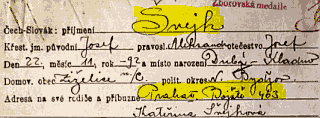 Zborovská medaile
Čech-Slovák: příjmení Švejk
Křest. jm. původní Josef pravosl. Aleksandr otečestvo Josef
Den 22, měsíc 11, rok -92 a místo narození Dubý - Kladno
Domov. obec Žiželice n/C. polit. okres N. Bydžov
Adresa na své rodiče a příbuzné Praha Bojiště 463
Kateřina Švejková